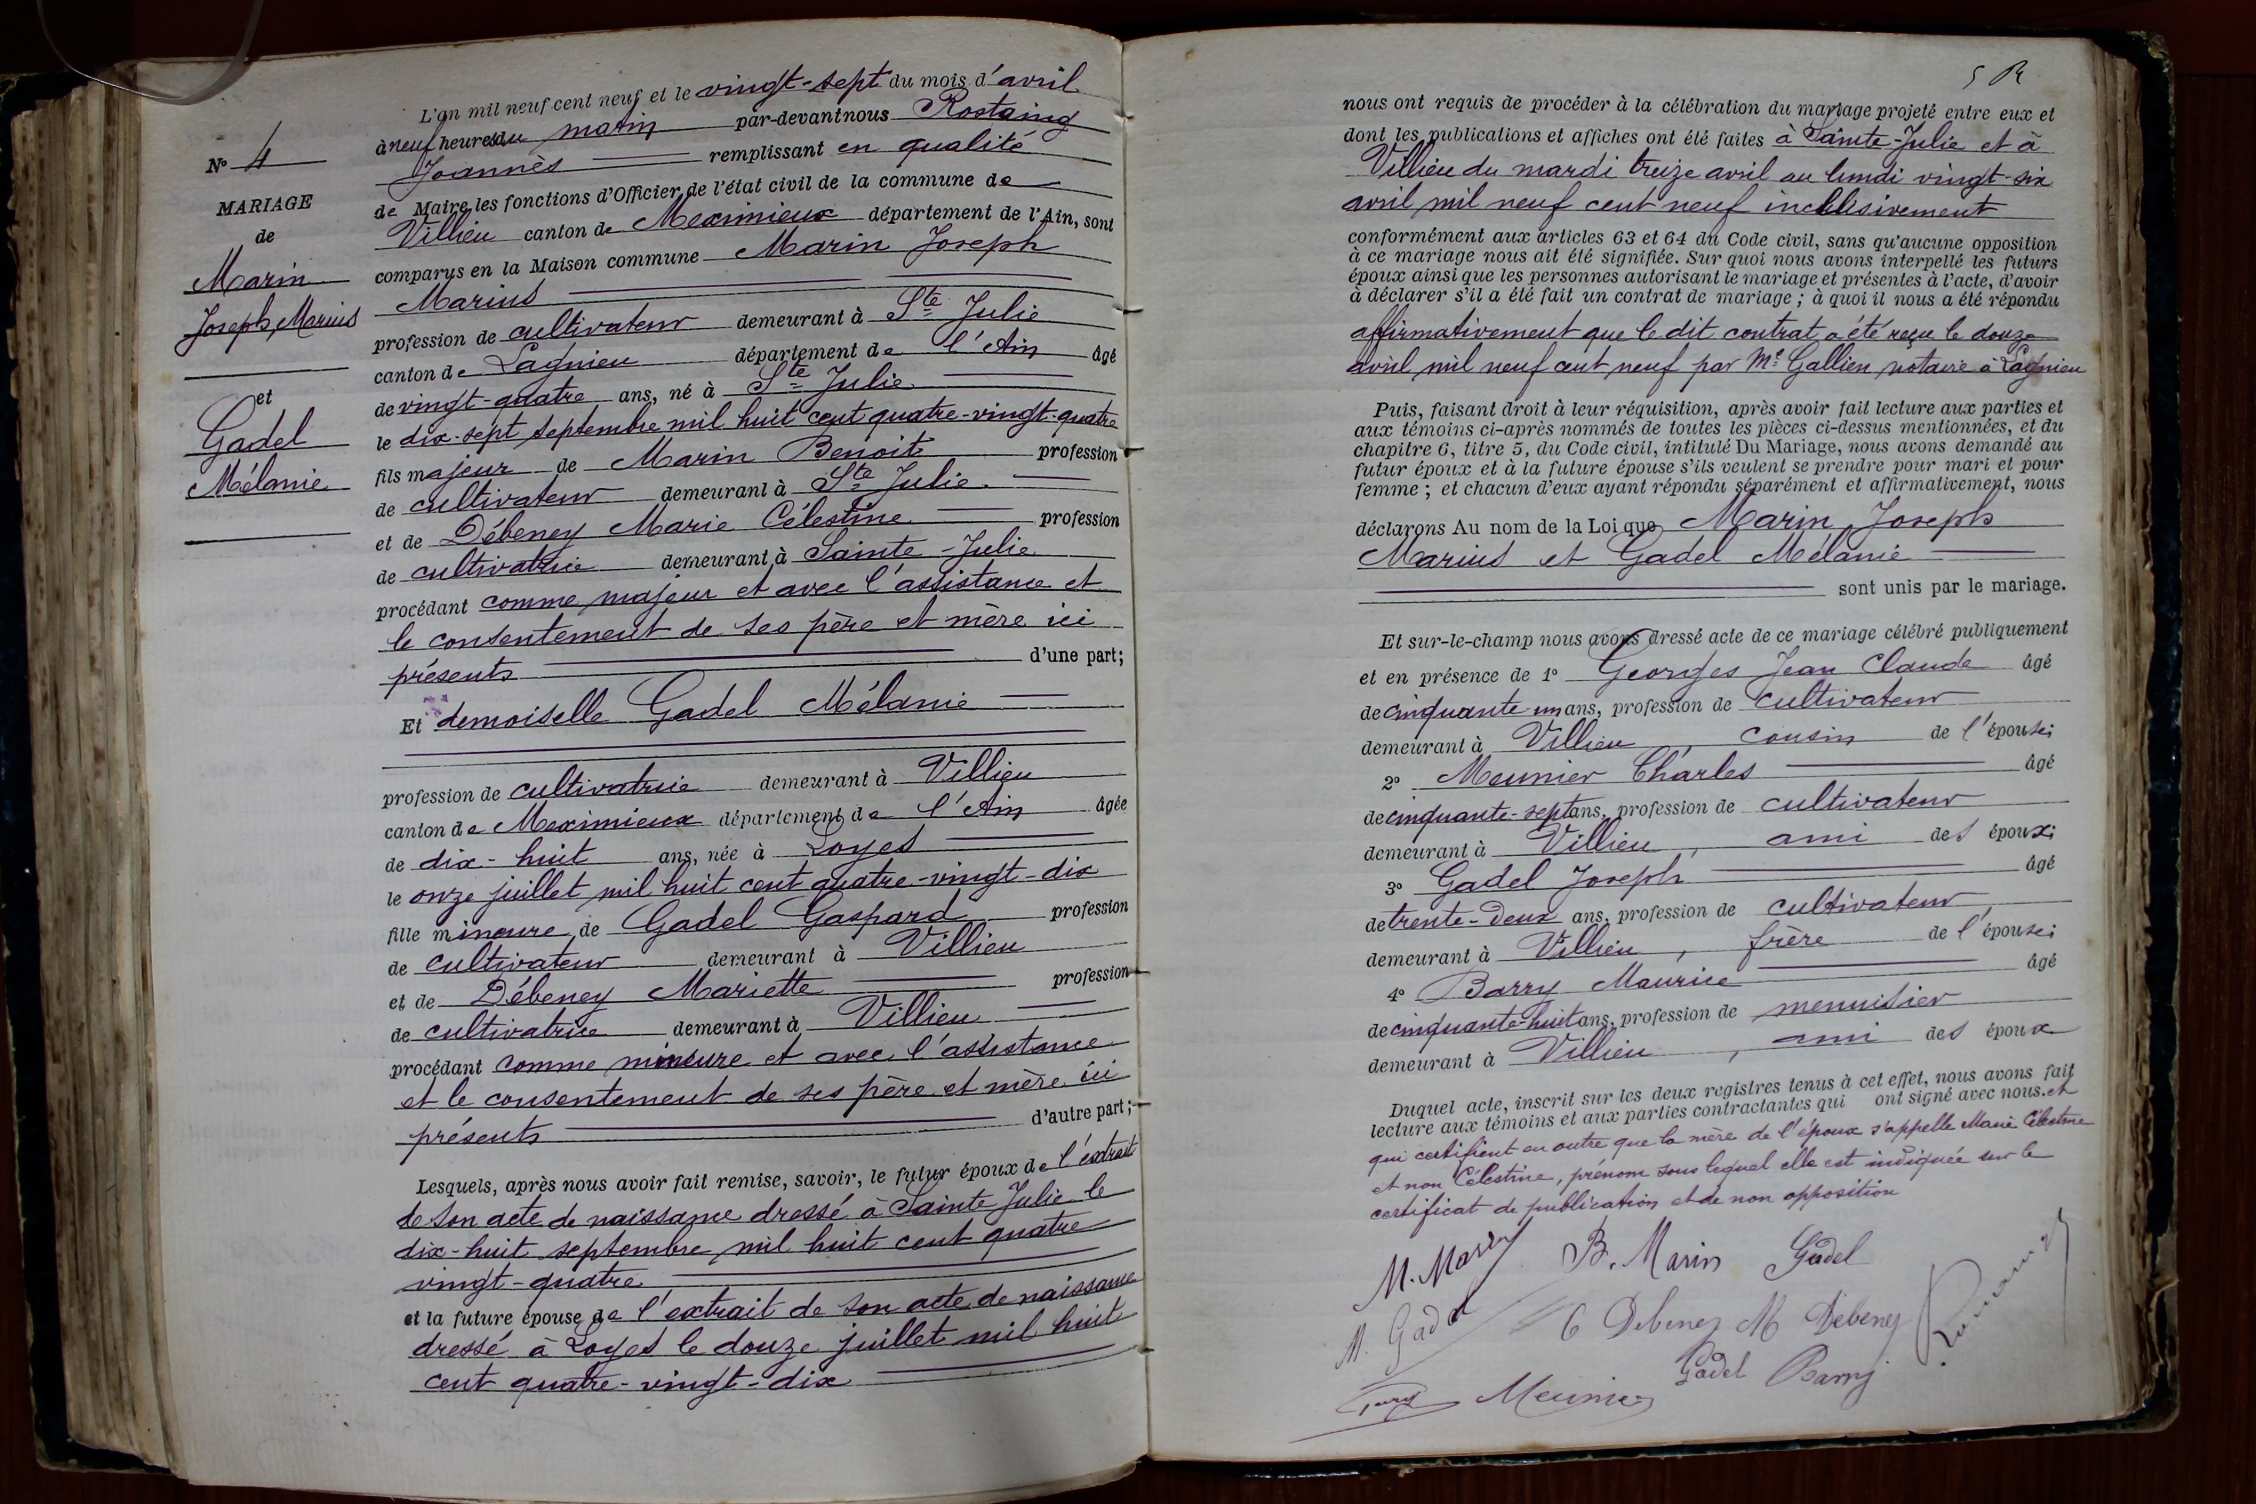 N° 4
MARIAGE
de
Marin
Joseph, Marius
et
Gadel
Mélanie
L'an mil neuf cent neuf et le vingt-sept du mois d'avril
à neuf heures du matin par-devant nous Rostaing
Joannès remplissant en qualité
de Maire les fonctions d'Officier de l'état civil de la commune de
Villieu canton de Meximieux département de l'Ain, sont
comparus en la Maison commune Marin Joseph
Marius
profession de cultivateur demeurant à Ste Julie
canton de Lagnieu département de l'Ain âgé
de vingt-quatre ans, né à Ste Julie
le dix-sept septembre mil huit cent quatre-vingt-quatre
fils majeur de Marin Benoit profession
de cultivateur demeurant à Ste Julie
et de Débeney Marie Célestine profession
de cultivatrice demeurant à Sainte-Julie
procédant comme majeur et avec l'assistance et
le consentement de ses père et mère ici
présents d'une part;
Et demoiselle Gadel Mélanie
profession de cultivatrice demeurant à Villieu
canton de Meximieux département de l'Ain âgée
de dix-huit ans, née à Loyes
le onze juillet mil huit cent quatre-vingt-dix
fille mineure de Gadel Gaspard profession
de cultivateur demeurant à Villieu
et de Débeney Mariette profession
de cultivatrice demeurant à Villieu
procédant comme mineure et avec l'assistance
et le consentement de ses père et mère ici
présents d'autre part;
Lesquels, après nous avoir fait remise, savoir, le futur époux de l'extrait
de son acte de naissance dressé à Sainte-Julie le
dix-huit septembre mil huit cent quatre
vingt-quatre
et la future épouse de l'extrait de son acte de naissance
dressé à Loyes le douze juillet mil huit
cent quatre-vingt-dix
5 R
nous ont requis de procéder à la célébration du mariage projeté entre eux et
dont les publications et affiches ont été faites à Sainte-Julie et à
Villieu du mardi treize avril au lundi vingt-six
avril mil neuf cent neuf inclusivement
conformément aux articles 63 et 64 du Code civil, sans qu'aucune opposition
à ce mariage nous ait été signifiée. Sur quoi nous avons interpellé les futurs
époux ainsi que les personnes autorisant le mariage et présentes à l'acte, d'avoir
à déclarer s'il a été fait un contrat de mariage ; à quoi il nous a été répondu
affirmativement que le dit contrat a été reçu le douze
avril mil neuf cent neuf par Me Gallien notaire à Lagnieu
Puis, faisant droit à leur réquisition, après avoir fait lecture aux parties et
aux témoins ci-après nommés de toutes les pièces ci-dessus mentionnées, et du
chapitre 6, titre 5, du Code civil, intitulé Du Mariage, nous avons demandé au
futur époux et à la future épouse s'ils veulent se prendre pour mari et pour
femme ; et chacun d'eux ayant répondu séparément et affirmativement, nous
déclarons Au nom de la Loi que Marin Joseph
Marius et Gadel Mélanie
sont unis par le mariage.
Et sur-le-champ nous avons dressé acte de ce mariage célébré publiquement
et en présence de 1° Georges Jean Claude âgé
de cinquante-un ans, profession de cultivateur
demeurant à Villieu, cousin de l'épouse;
2° Meunier Charles âgé
de cinquante-sept ans, profession de cultivateur
demeurant à Villieu, ami des époux;
3° Gadel Joseph âgé
de trente-deux ans, profession de cultivateur,
demeurant à Villieu, frère de l'épouse;
4° Barry Maurice âgé
de cinquante-huit ans, profession de menuisier
demeurant à Villieu, ami des époux
Duquel acte, inscrit sur les deux registres tenus à cet effet, nous avons fait
lecture aux témoins et aux parties contractantes qui ont signé avec nous. et
qui certifient en outre que la mère de l'époux s'appelle Marie Célestine
et non Célestine, prénom sous lequel elle est indiquée sur le
certificat de publication et de non opposition
M. Marin B. Marin Gadel
M. Gadel C Debeney M Debeney
Meunier Gadel Barry